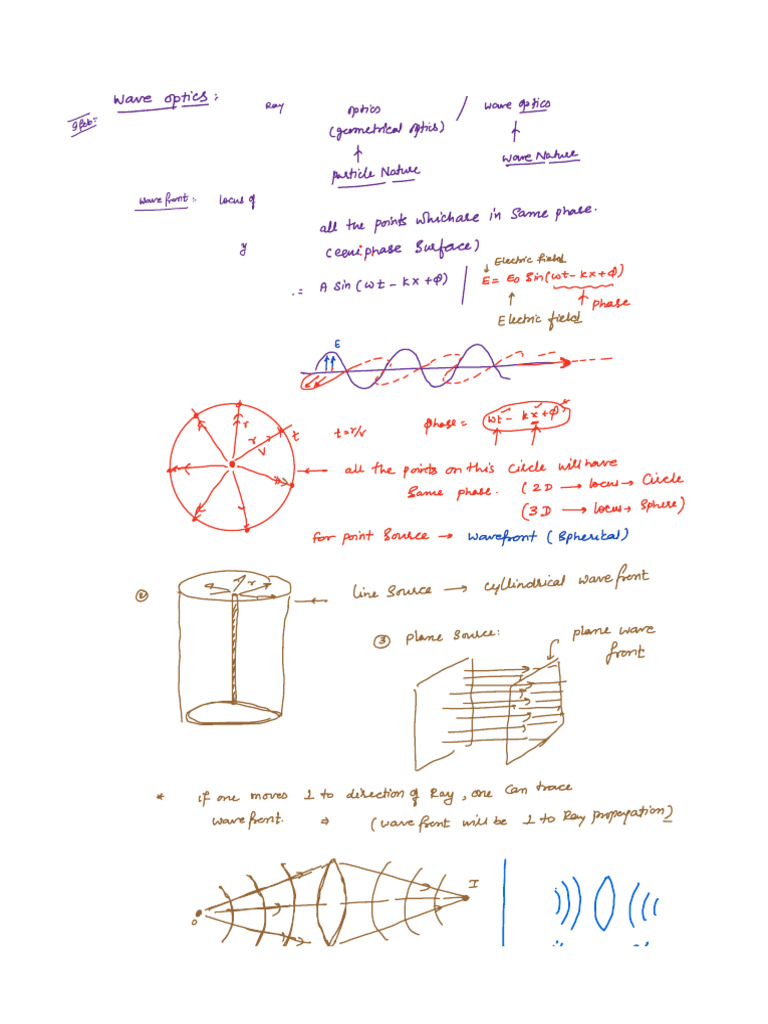 Wave optics:
Ray optics / wave optics
(geometrical optics)
Particle Nature
Wave Nature
Wavefront: Locus of
all the points which are in same phase.
y
phase Surface)
= A sin(ωt - kx + φ)
Electric field
E = E₀ sin(ωt - kx + φ)
phase
Electric field
E
r
r
v
t
t = r/v
Phase = ωt - kx + φ
all the points on this circle will have
same phase. (2D → locus → Circle
(3D → locus → Sphere)
for point source → wavefront (Spherical)
②
r
line source → cyllindrical wavefront
③ plane source:
plane wave
front
* if one moves ⊥ to direction of Ray, one can trace
wavefront. ⇒ (wavefront will be ⊥ to Ray propogation)
O
I